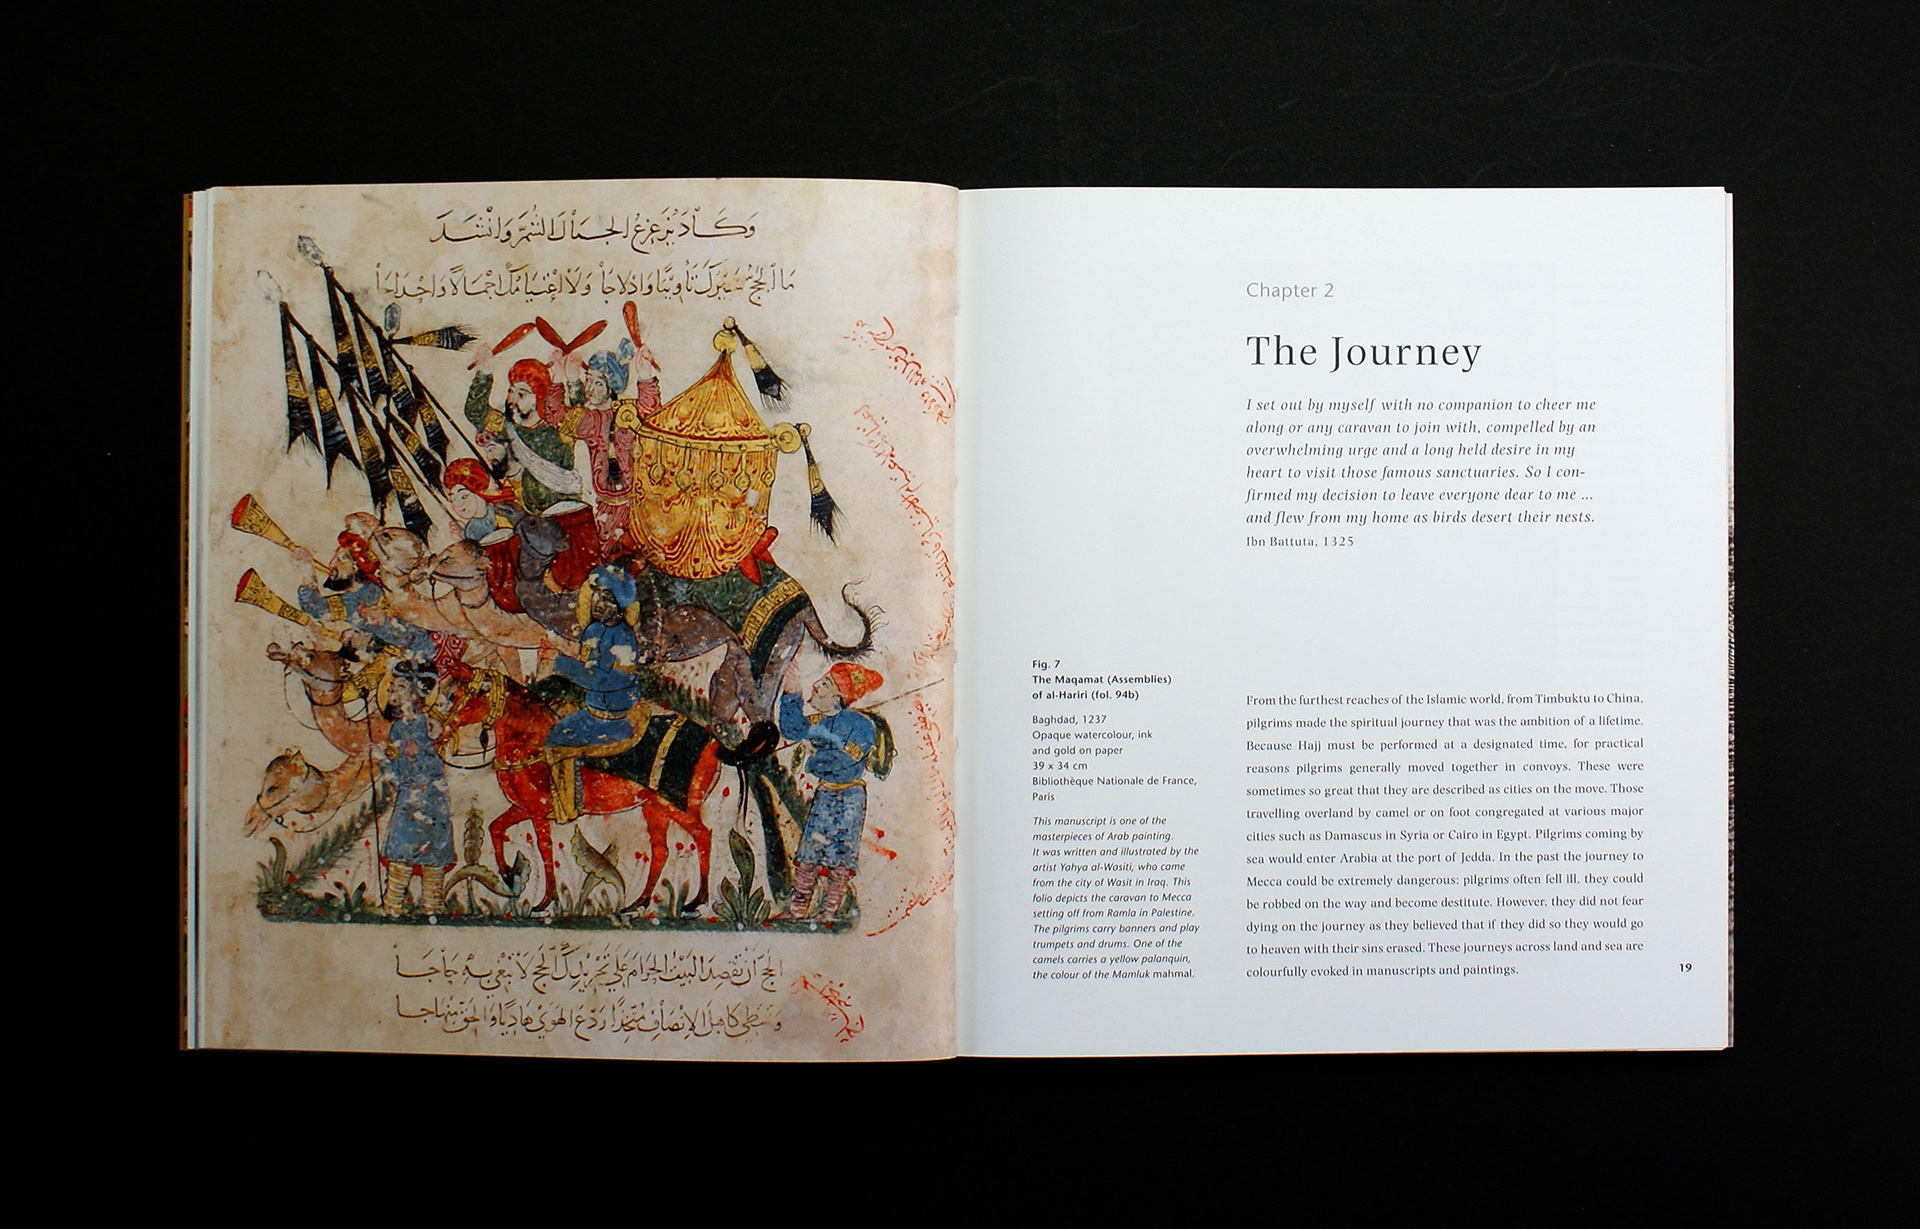 وَكَادَ يُزَعْزِعُ الجِبَالَ الشُّمَّ وَانْشَدَ
مَا الحَجُّ سَيْرُكَ تَأْوِيبًا وَادْلَاجًا وَلَا اعْتِيَامُكَ اجْمَالًا وَاحْدَاجًا
الحَجُّ انْ تَقْصِدَ البَيْتَ الحَرَامَ عَلَى تَجْرِيدِكَ الحَجَّ لَا تَبْغِي بِهِ حَاجًا
وَتَمْتَطِي كَاهِلَ الانْصَافِ مُتَّخِذًا رَدْعَ الهَوَى هَادِيًا وَالحَقَّ مِنْهَاجًا
Chapter 2
The Journey
I set out by myself with no companion to cheer me
along or any caravan to join with, compelled by an
overwhelming urge and a long held desire in my
heart to visit those famous sanctuaries. So I con-
firmed my decision to leave everyone dear to me ...
and flew from my home as birds desert their nests.
Ibn Battuta, 1325
Fig. 7
The Maqamat (Assemblies)
of al-Hariri (fol. 94b)
Baghdad, 1237
Opaque watercolour, ink
and gold on paper
39 x 34 cm
Bibliothèque Nationale de France,
Paris
This manuscript is one of the
masterpieces of Arab painting.
It was written and illustrated by the
artist Yahya al-Wasiti, who came
from the city of Wasit in Iraq. This
folio depicts the caravan to Mecca
setting off from Ramla in Palestine.
The pilgrims carry banners and play
trumpets and drums. One of the
camels carries a yellow palanquin,
the colour of the Mamluk mahmal.
From the furthest reaches of the Islamic world, from Timbuktu to China,
pilgrims made the spiritual journey that was the ambition of a lifetime.
Because Hajj must be performed at a designated time, for practical
reasons pilgrims generally moved together in convoys. These were
sometimes so great that they are described as cities on the move. Those
travelling overland by camel or on foot congregated at various major
cities such as Damascus in Syria or Cairo in Egypt. Pilgrims coming by
sea would enter Arabia at the port of Jedda. In the past the journey to
Mecca could be extremely dangerous: pilgrims often fell ill, they could
be robbed on the way and become destitute. However, they did not fear
dying on the journey as they believed that if they did so they would go
to heaven with their sins erased. These journeys across land and sea are
colourfully evoked in manuscripts and paintings.
19